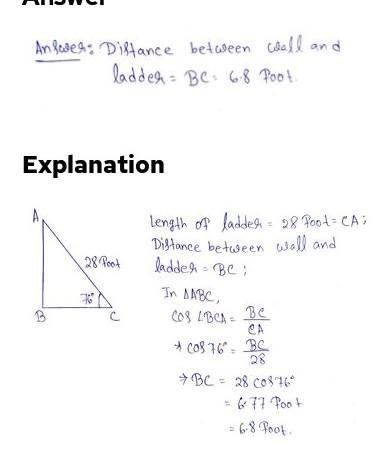 Answer
Answer: Distance between wall and
ladder = BC = 6.8 Foot.
Explanation
A
28 Foot
76°
B
C
Length of ladder = 28 Foot = CA;
Distance between wall and
ladder = BC ;
In ΔABC,
cos ∠BCA = BC/CA
→ cos 76° = BC/28
→ BC = 28 cos 76°
= 6.77 Foot
= 6.8 Foot.